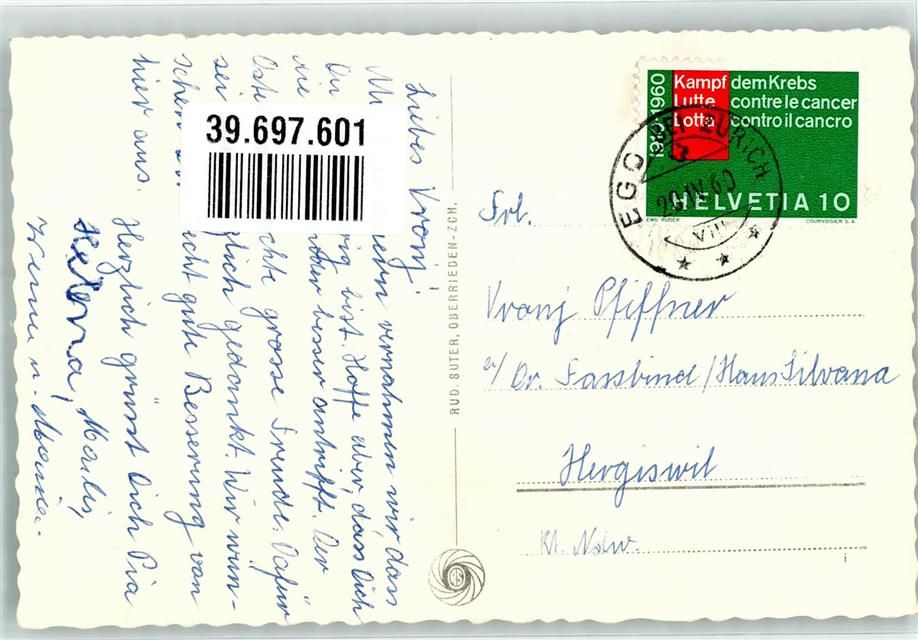 Liebes Vronj!
vernahmen wir dass
Du bist. Hoffe aber, dass Dich
die besser antrifft. Der
Oste chte grosse Freude. Dafür
sei lich gedankt. Wir wün-
schen recht gute Besserung von
hier aus.
Herzlich grüsst Dich Pia
Helena, Marlis,
u. Maria.
39.697.601
RUD. SUTER, OBERRIEDEN-ZCH.
1910 1960
Kampf dem Krebs
Lutte contre le cancer
Lotta contro il cancro
HELVETIA 10
EMIL RUDER COURVOISIER S.A.
EGG BEI ZÜRICH
VIII
Frl.
Vronj Pfiffner
c/ Dr. Fassbind / Haus Silvana
Hergiswil
Kt. Ndw.